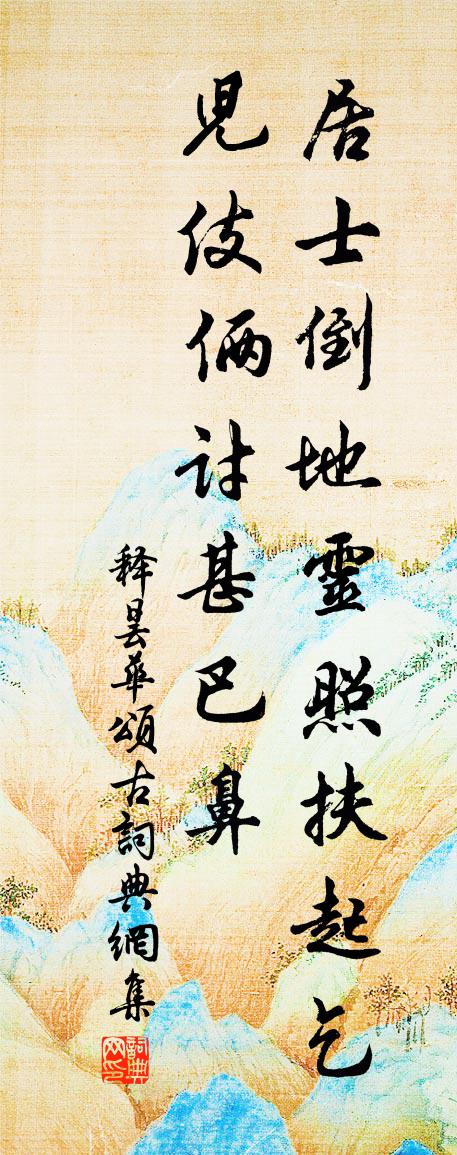 居士倒地靈照扶起乞
兒伎倆討甚巴鼻
释昙華頌古詞典網集
詞典网印